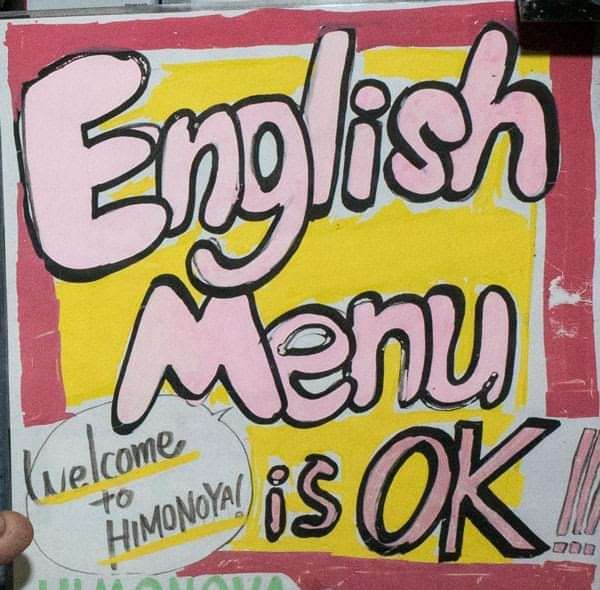 English
Menu
is OK!!!
Welcome
to
HIMONOYA!
HIMONOYA